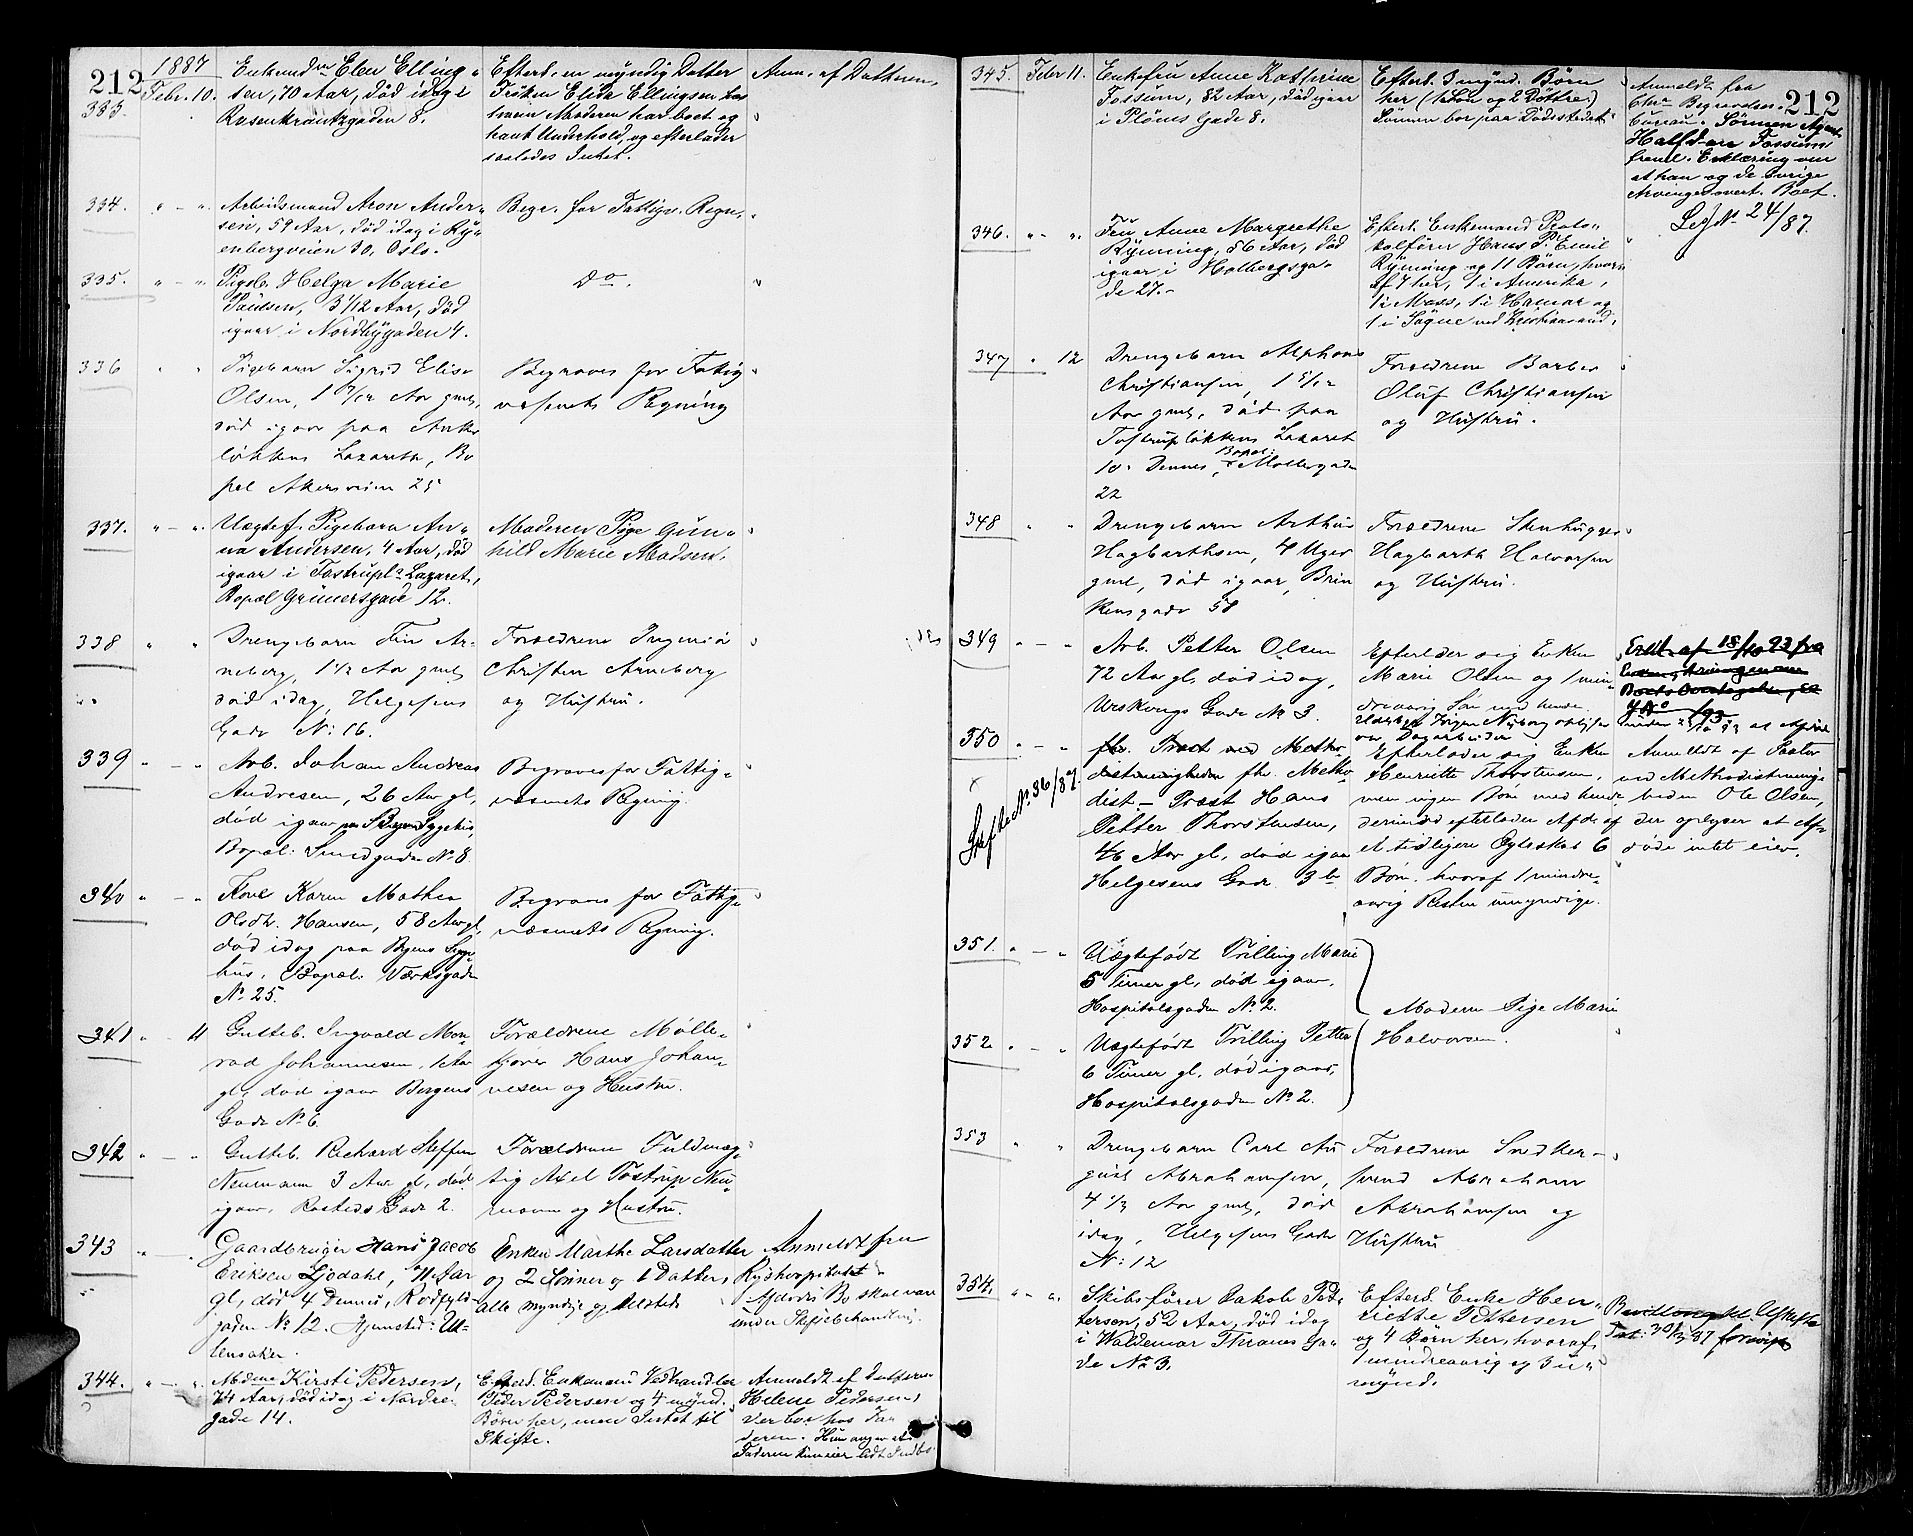 212
1887
Febr. 10.
333.
Enkemdm Elen Elling=
sen, 70 Aar, død idag i
Rosenkrantzgaden 8.
Efterl. en myndig Datter
Frøken Elida Ellingsen hos
hvem Moderen har boet og
havt Underhold, og efterlader
saaledes Intet.
Anm. af Datteren.
334. " - "
Arbeidsmand Aron Ander=
sen, 59 Aar, død idag i Ry=
enbergveien 30, Oslo.
Begr. for Fattigv. Regn.
335. " - "
Pigeb. Helga Marie
Paulsen, 3 1/12 Aar, død
igaar i Nordbygaden 4.
Do.
336 " "
Pigebarn Sigrid Elise
Olsen, 1 7/12 Aar gml,
død igaar paa Anker
løkkens Lazareth, Bo
pæl Akersveien 25
Begraves for Fattig
væsenets Regning
337. " - "
Uægtef. Pigebarn An=
na Andersen, 4 Aar, død
igaar i Tostrupl. Lazaret,
Bopæl Grünersgade 12.
Moderen Pige Gun=
hild Marie Madsen.
338 " "
Drengebarn Finn Ar-
neberg, 1 1/2 Aar gml,
død idag, Helgesens
Gade No: 16.
Forældrene Ingeniør
Christian Arneberg
og Hustru.
339 " - "
Arb. Johan Andreas
Andresen, 26 Aar gl,
død igaar paa Byens Sygehus,
Bopæl: Smedgaden No 8.
Begraves for Fattig=
væsenets Regning.
340 " - "
Kone Karen Mathea
Olsdtr. Hansen, 58 Aar gl,
død idag paa Byens Syge
hus. Bopæl: Værksgaden
No 25.
Begraves for Fattig=
væsenets Regning.
341 " - 11
Gutteb. Ingvald Mon=
rad Johannesen, 1 Aar
gl, død igaar Bergens
Gade No 6.
Forældrene Mølle-
kjører Hans Johan=
nesen og Hustru.
342 " - "
Gutteb. Richard Steffen
Neumann 3 Aar gl, død
igaar, Rosteds Gade 2.
Forældrene Fuldmæg-
tig Axel Tostrup Neu=
mann og Hustru.
343 " "
Gaardbruger Hans Jacob
Eriksen Ljødahl, 71 Aar
gl, død 4 dennes, Rodfyld
gaden No 12. Hjemsted: Ul-
lensaker.
Enken Marthe Larsdatter
og 2 Sønner og 1 Datter,
alle myndige og tilstede
Anmeldt fra
Rigshospitalet
Afdødes Bo skal være
under Skiftebehandling.
344. " - "
Madme Kirsti Pedersen,
74 Aar, død idag i Nordre
gade 14.
Efterl. Enkemand Vedhandler
Peder Pedersen og 4 mynd.
Børn her, men Intet til
Skifte.
Anmeldt af Datteren
Helene Pedersen,
der bor hos Fa
deren. Hun angav at
Faderen kun eier lidt Indbo.
345. Febr 11.
Enkefru Anne Kathrine
Fossum, 82 Aar, død igaar
i Pløens Gade 8.
Efterl. 3 mynd. Børn
her (1 Søn og 2 Døttre.)
Sønnen bor paa Dødsstedet.
Anmeldt fra
Chr. Begravelses-
bureau. Sønnen Agent
Halfdan Fossum
freml. Erklæring om
at han og de øvrige
Arvinger overt. Boet.
LegNo 24/87.
212
346. " - "
Fru Anne Margrethe
Rynning, 56 Aar, død
igaar i Holbergsga=
de 27.-
Efterl. Enkemand Proto=
kolfører Hans P. Emil
Rynning og 11 Børn, hvor=
af 7 her, 1 i Amerika,
1 i Moss, 1 i Hamar og
1 i Søgne ved Kristianssand.
347 " 12
Drengebarn Alphons
Christiansen, 1 5/12
Aar gml, død paa
Tostrupløkkens Lazaret
10. Dennes, Bopæl: Møllergaden
22
Forældrene Barber
Oluf Christiansen
og Hustru.
348 " "
Drengebarn Arthur
Hagbarthsen, 4 Uger
gml, død igaar, Brin
kensgade 58
Forældrene Stenhugger
Hagbarth Halvorsen
og Hustru.
349 " - "
Arb. Petter Olsen
72 Aar gl, død idag,
Urskougs Gade No 3.
Efterlader sig Enken
Marie Olsen og 1 min
dreaarig Søn med hende.
Erkl. af 18/10 93 fra
350 " - "
Skifte No. 36/87.
fhv. Præst ved Metho=
distmenigheden fhv. Metho=
dist- Præst Hans
Petter Thorstensen,
46 Aar gl, død igaar
Helgesens Gade 3 b
Efterlader sig Enken
Henriette Thorstensen,
men ingen Børn med hende.
derimod efterlader Afdøde af
et tidligere Ægteskab 6
Børn, hvoraf 1 mindre=
aarig Resten umyndige.
Anmeldt af Pastor
ved Methodistmenig=
heden Ole Olsen,
der oplyser at Af=
døde intet eier.
351. " - "
Uægtefødt Trilling Marie
5 Timer gl, død igaar,
Hospitalsgaden No 2.
Moderen Pige Marie
Halvorsen.
352 " - "
Uægtefødt Trilling Petter
6 Timer gl, død igaar,
Hospitalsgaden No 2.
353 " "
Drengebarn Carl Au
gust Abrahamsen,
4 1/2 Aar gml, død
idag, Helgesens Gade
No: 12
Forældrene Snedker-
svend Abraham
Abrahamsen og
Hustru
354. " - "
Skibsfører Jakob Ped=
tersen, 52 Aar, død idag
i Waldemar Thranes Ga=
de No 3.
Efterl. Enke Hen=
riette Pettersen
og 4 Børn her, hvoraf
1 mindreaarig og 3 u=
mynd.